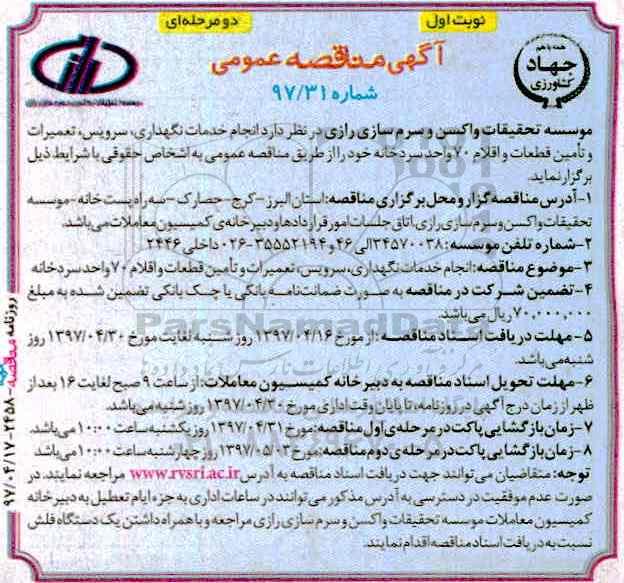 نوبت اول
دو مرحله‌ای
همه با هم
جهاد
کشاورزی
آگهی مناقصه عمومی
شماره ۹۷/۳۱
موسسه تحقیقات واکسن و سرم سازی رازی در نظر دارد انجام خدمات نگهداری، سرویس، تعمیرات
و تأمین قطعات و اقلام ۷۰ واحد سردخانه خود را از طریق مناقصه عمومی به اشخاص حقوقی با شرایط ذیل
برگزار نماید.
۱-آدرس مناقصه گزار و محل برگزاری مناقصه: استان البرز-کرج-حصارک-سه راه پست خانه-موسسه
تحقیقات واکسن و سرم سازی رازی، اتاق جلسات امور قراردادها و دبیرخانه‌ی کمیسیون معاملات می‌باشد.
۲-شماره تلفن موسسه: ۳۴۵۷۰۰۳۸ الی ۴۶ و ۳۵۵۵۲۱۹۴-۰۲۶ داخلی ۲۴۴۶
۳-موضوع مناقصه: انجام خدمات نگهداری، سرویس، تعمیرات و تأمین قطعات و اقلام ۷۰ واحد سردخانه
۴-تضمین شرکت در مناقصه به صورت ضمانت‌نامه بانکی یا چک بانکی تضمین شده به مبلغ
۷۰,۰۰۰,۰۰۰ ریال می‌باشد.
ParsNamadData
۵-مهلت دریافت اسناد مناقصه: از مورخ ۱۳۹۷/۰۴/۱۶ روز شنبه لغایت مورخ ۱۳۹۷/۰۴/۳۰ روز
شنبه می‌باشد.
۶-مهلت تحویل اسناد مناقصه به دبیرخانه کمیسیون معاملات: از ساعت ۹ صبح لغایت ۱۶ بعد از
ظهر از زمان درج آگهی در روزنامه، تا پایان وقت اداری مورخ ۱۳۹۷/۰۴/۳۰ روز شنبه می‌باشد.
۷-زمان بازگشایی پاکت در مرحله‌ی اول مناقصه: مورخ ۱۳۹۷/۰۴/۳۱ روز یکشنبه ساعت ۱۰:۰۰ می‌باشد
۸-زمان بازگشایی پاکت در مرحله‌ی دوم مناقصه: مورخ ۱۳۹۷/۰۵/۰۳ روز چهارشنبه ساعت ۱۰:۰۰ می‌باشد
توجه: متقاضیان می‌توانند جهت دریافت اسناد مناقصه به آدرس www.rvsri.ac.ir مراجعه نمایند. در
صورت عدم موفقیت در دسترسی به آدرس مذکور می‌توانند در ساعات اداری به جزء ایام تعطیل به دبیرخانه
کمیسیون معاملات موسسه تحقیقات واکسن و سرم سازی رازی مراجعه و با همراه داشتن یک دستگاه فلش
نسبت به دریافت اسناد مناقصه اقدام نمایند.
روزنامه مناقصه-۲۴۵۸-۹۷/۰۴/۱۷